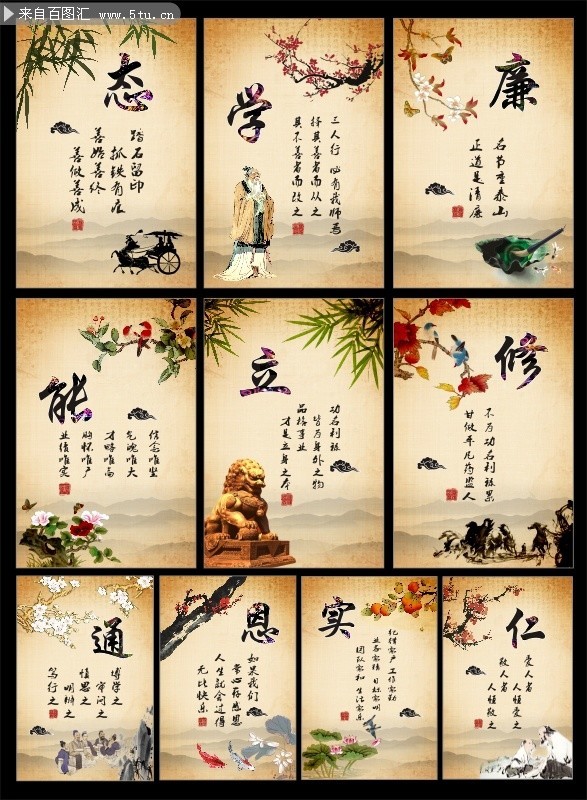 来自百图汇 www.5tu.cn
态
踏石留印
抓铁有痕
善始善终
善做善成
学
三人行 必有我师焉
择其善者而从之
其不善者而改之
廉
名节重泰山
正道是清廉
能
信念唯坚
气魄唯大
才略唯高
胸怀唯广
业绩唯实
立
功名利禄
皆为身外之物
品格事业
才是立身之本
修
不为功名利禄累
甘做平凡药监人
通
博学之
审问之
慎思之
明辨之
笃行之
恩
如果我们
常心存感恩
人生就会过得
无比快乐
实
团队家和 生活家乐
仁
爱人者
人恒爱之
敬人者
人恒敬之